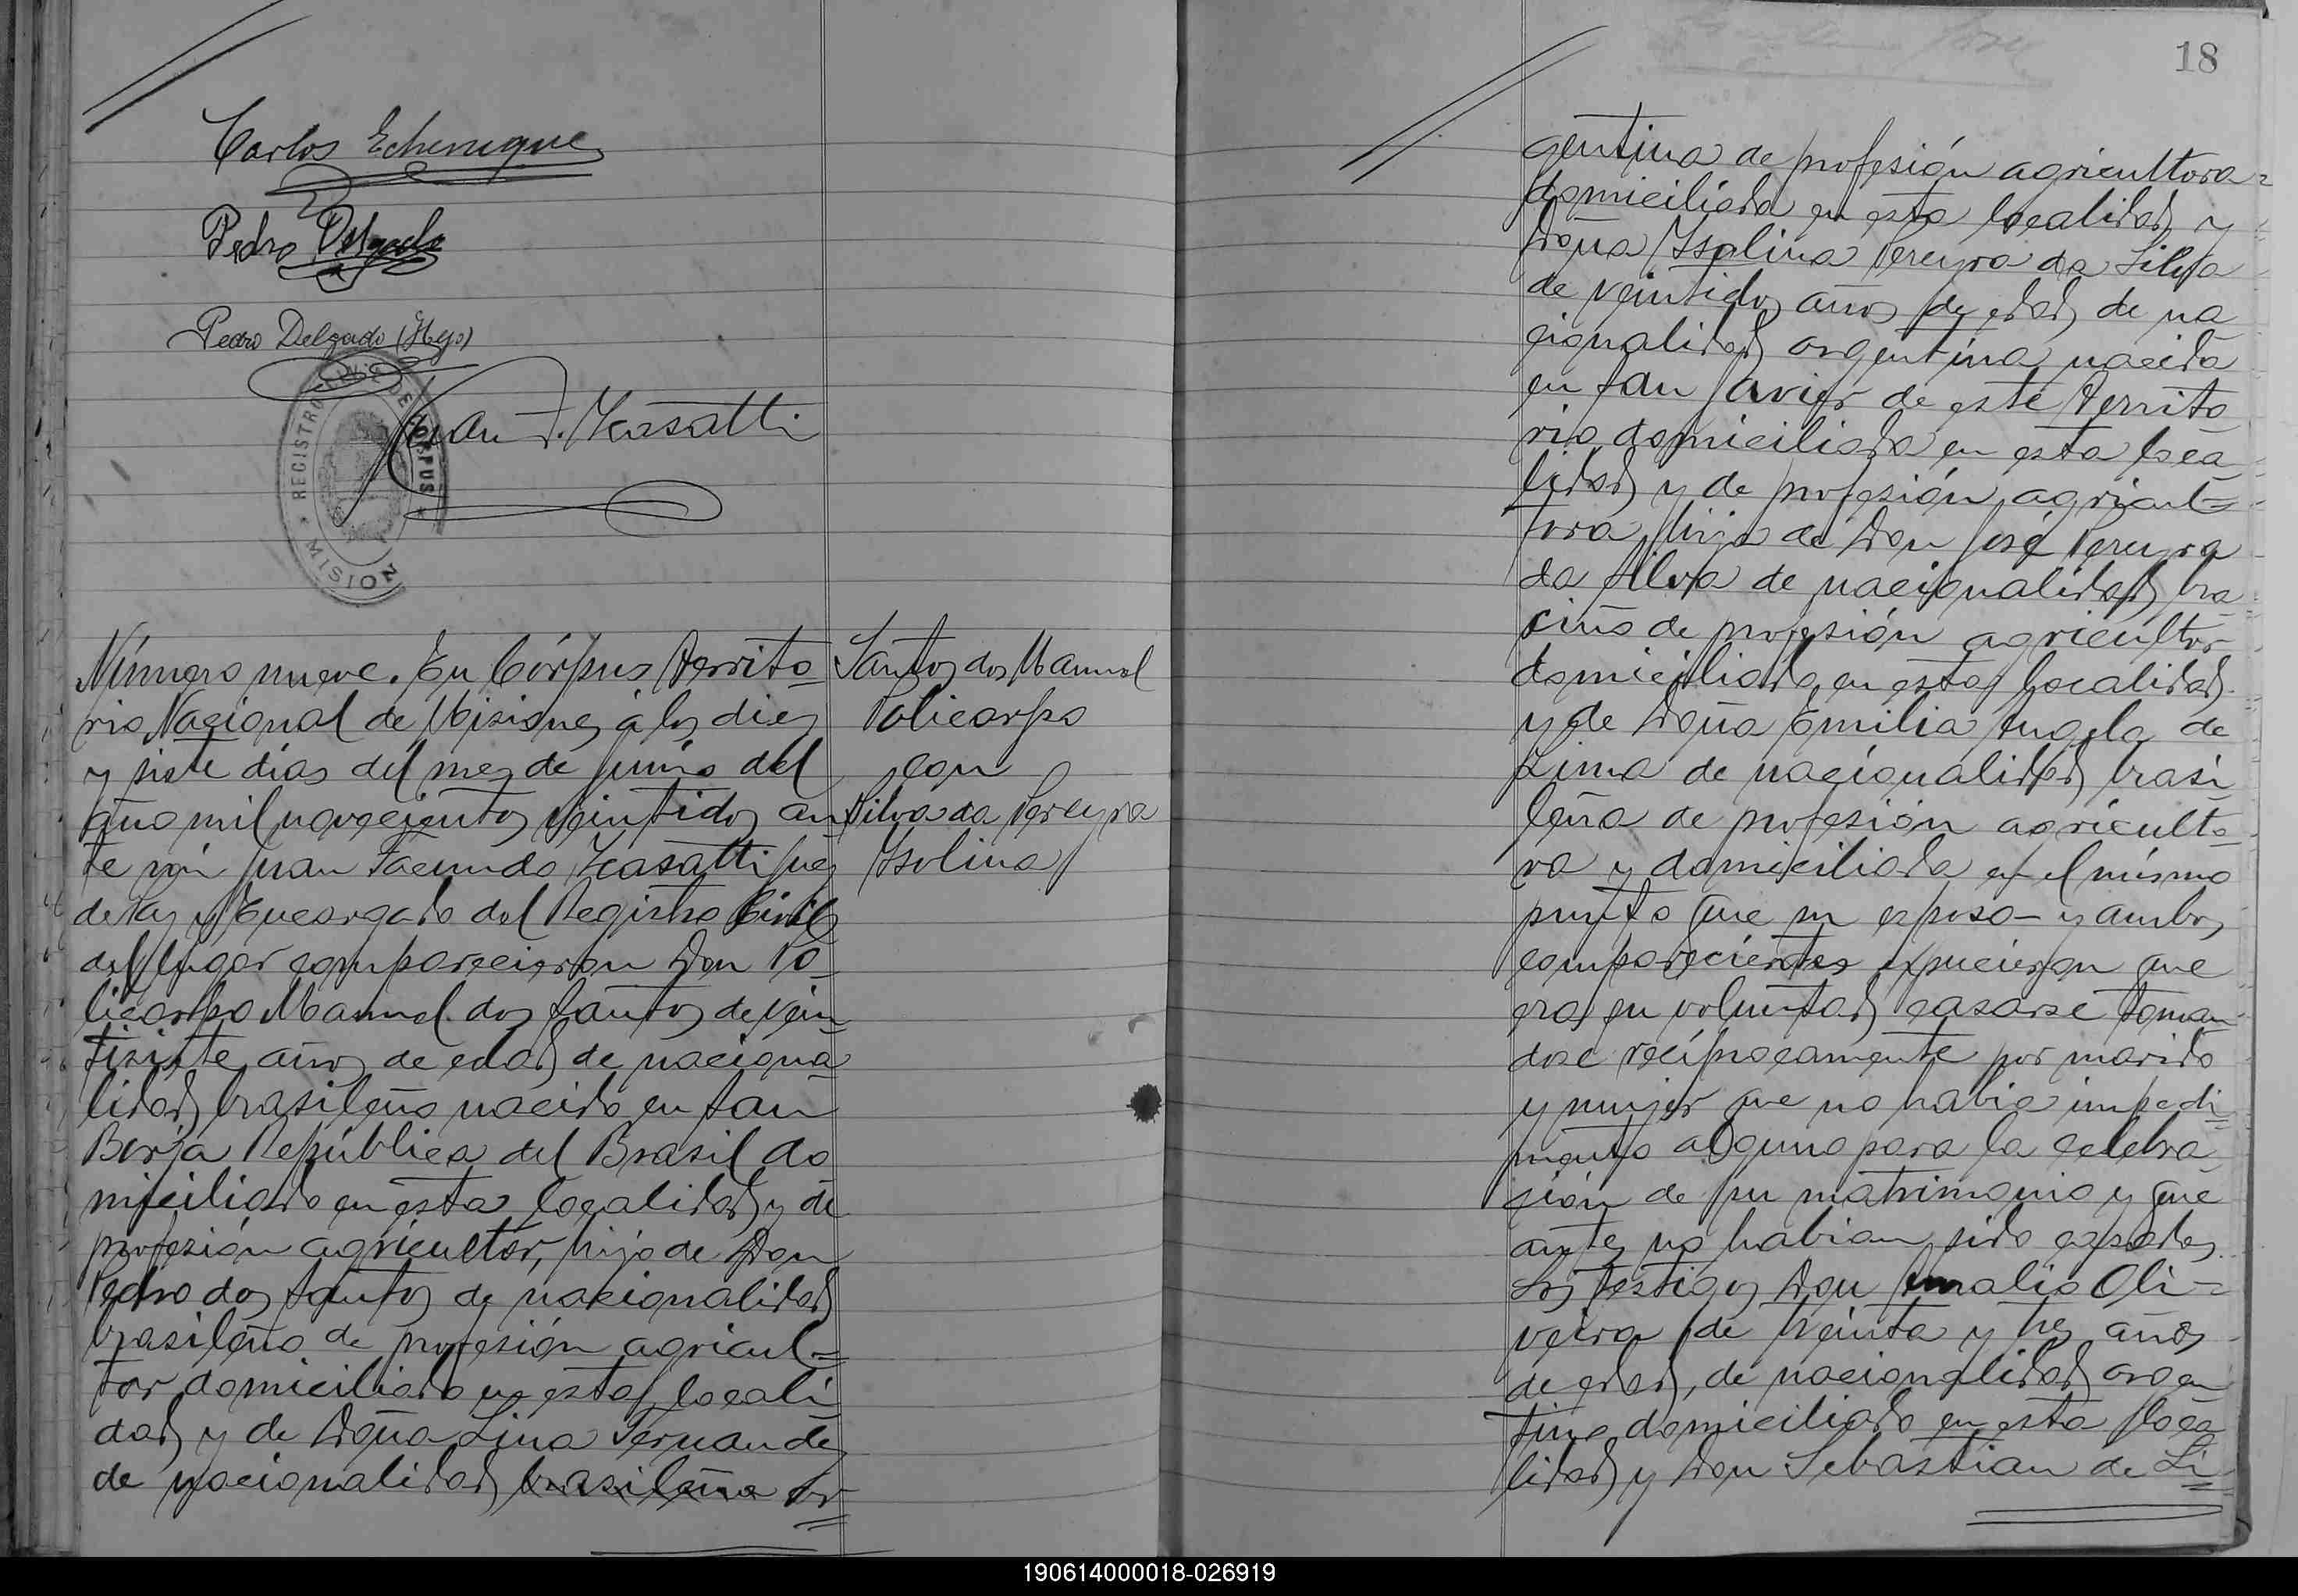 Carlos Echenique
Pedro Delgado
Pedro Delgado (Hijo)
REGISTRO CIVIL DE CORPUS
MISION
Juan F. Casatti
Número nueve. En Córpus Territo
rio Nacional de Misiones á los diez
y siete dias del mes de junio del
año mil novecientos veintidos an
te mí Juan Facundo Casatti Juez
de Paz y Encargado del Registro Civil
del lugar comparecieron Don Po-
licarpo Manuel dos Santos de vein
tisiete años de edad de naciona
lidad brasileño nacido en San
Borja República del Brasil do
miciliado en esta localidad y de
profesión agricultor, hijo de Don
Pedro dos Santos de nacionalidad
brasileño de profesión agricul=
tor domiciliado en esta locali
dad y de Doña Lina Fernandez
de nacionalidad brasileña ar=
Santos dos Manuel
Policarpo
con
Silva da Pereyra
Isolina
18
gentina de profesión agricultora=
domiciliada en esta localidad y
Doña Isolina Pereyra da Silva
de veintidos años de edad de na
cionalidad argentina nacida
en San Javier de este Territo
rio domiciliada en esta loca
lidad y de profesión agricul=
tora hija de Don José Pereyra
da Silva de nacionalidad bra
sileño de profesión agricultor
domiciliado en esta localidad
y de Doña Emilia Angela de
Lima de nacionalidad brasi
leña de profesión agriculto
ra y domiciliada en el mismo
punto que su esposo- y ambos
comparecientes expucieron que
era su voluntad casarse toman
dose recíprocamente por marido
y mujer que no habia impedi
mento alguno para la celebra
sión de su matrimonio y que
antes no habian sido casados.
Los testigos Don Amalio Oli=
veira de treinta y tres años
de edad, de nacionalidad argen
tino domiciliado en esta loca
lidad y Don Sebastian de Li=
190614000018-026919